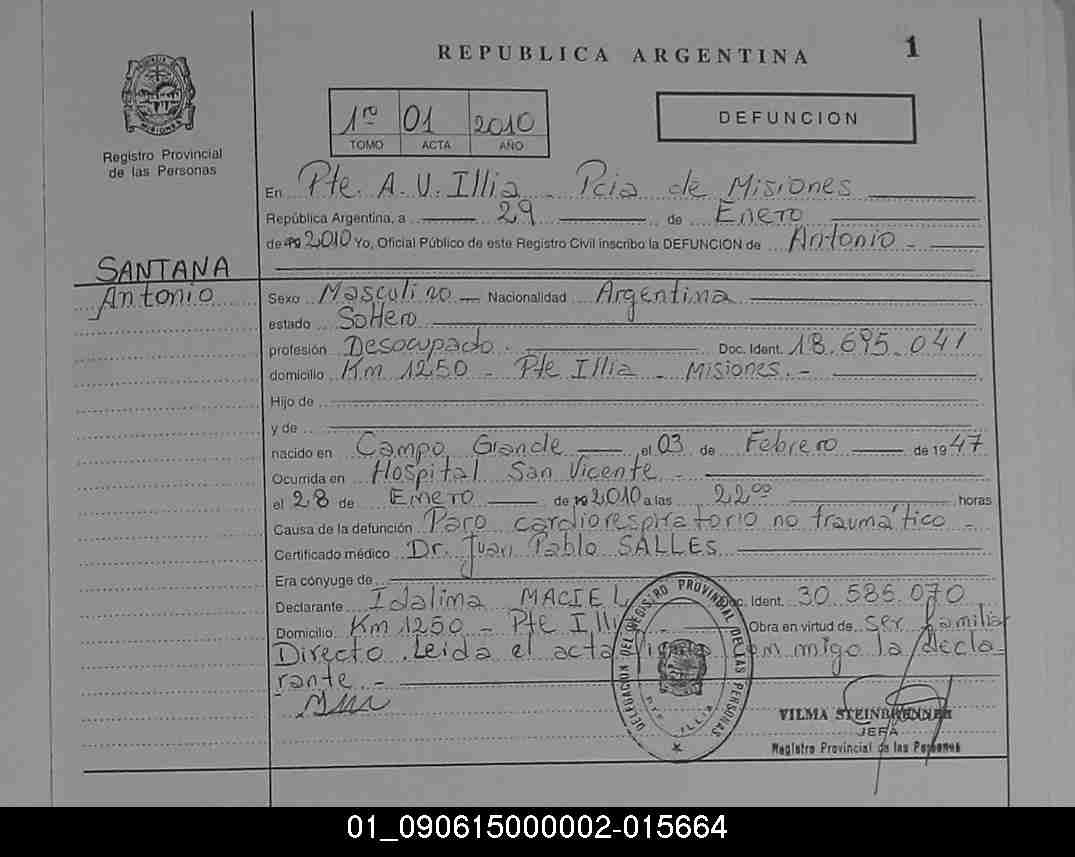 REPUBLICA ARGENTINA
1
PROVINCIA DE MISIONES
Registro Provincial
de las Personas
1ro 01 2010
TOMO ACTA AÑO
DEFUNCION
En Pte. A. U. Illia - Pcia de Misiones
República Argentina, a 29 de Enero
de 2010 Yo, Oficial Público de este Registro Civil inscribo la DEFUNCION de Antonio -
SANTANA
Antonio
Sexo Masculino Nacionalidad Argentina
estado Soltero
profesión Desocupado. Doc. Ident. 18.695.041
domicilio Km 1250 - Pte Illia - Misiones. -
Hijo de
y de
nacido en Campo Grande el 03 de Febrero de 1947
Ocurrida en Hospital San Vicente -
el 28 de Enero de 2010 a las 22 00 horas
Causa de la defunción Paro cardiorespiratorio no traumático -
Certificado médico Dr. Juan Pablo SALLES
Era cónyuge de
Declarante Idalima MACIEL Doc. Ident. 30 585.070
Domicilio Km 1250 - Pte Illia - Obra en virtud de ser familiar
Directo. Leida el acta firma conmigo la decla-
rante -
DELEGACION DEL REGISTRO PROVINCIAL DE LAS PERSONAS
PTE. ILLIA
VILMA STEINBRENNER
JEFA
Registro Provincial de las Personas
01_090615000002-015664